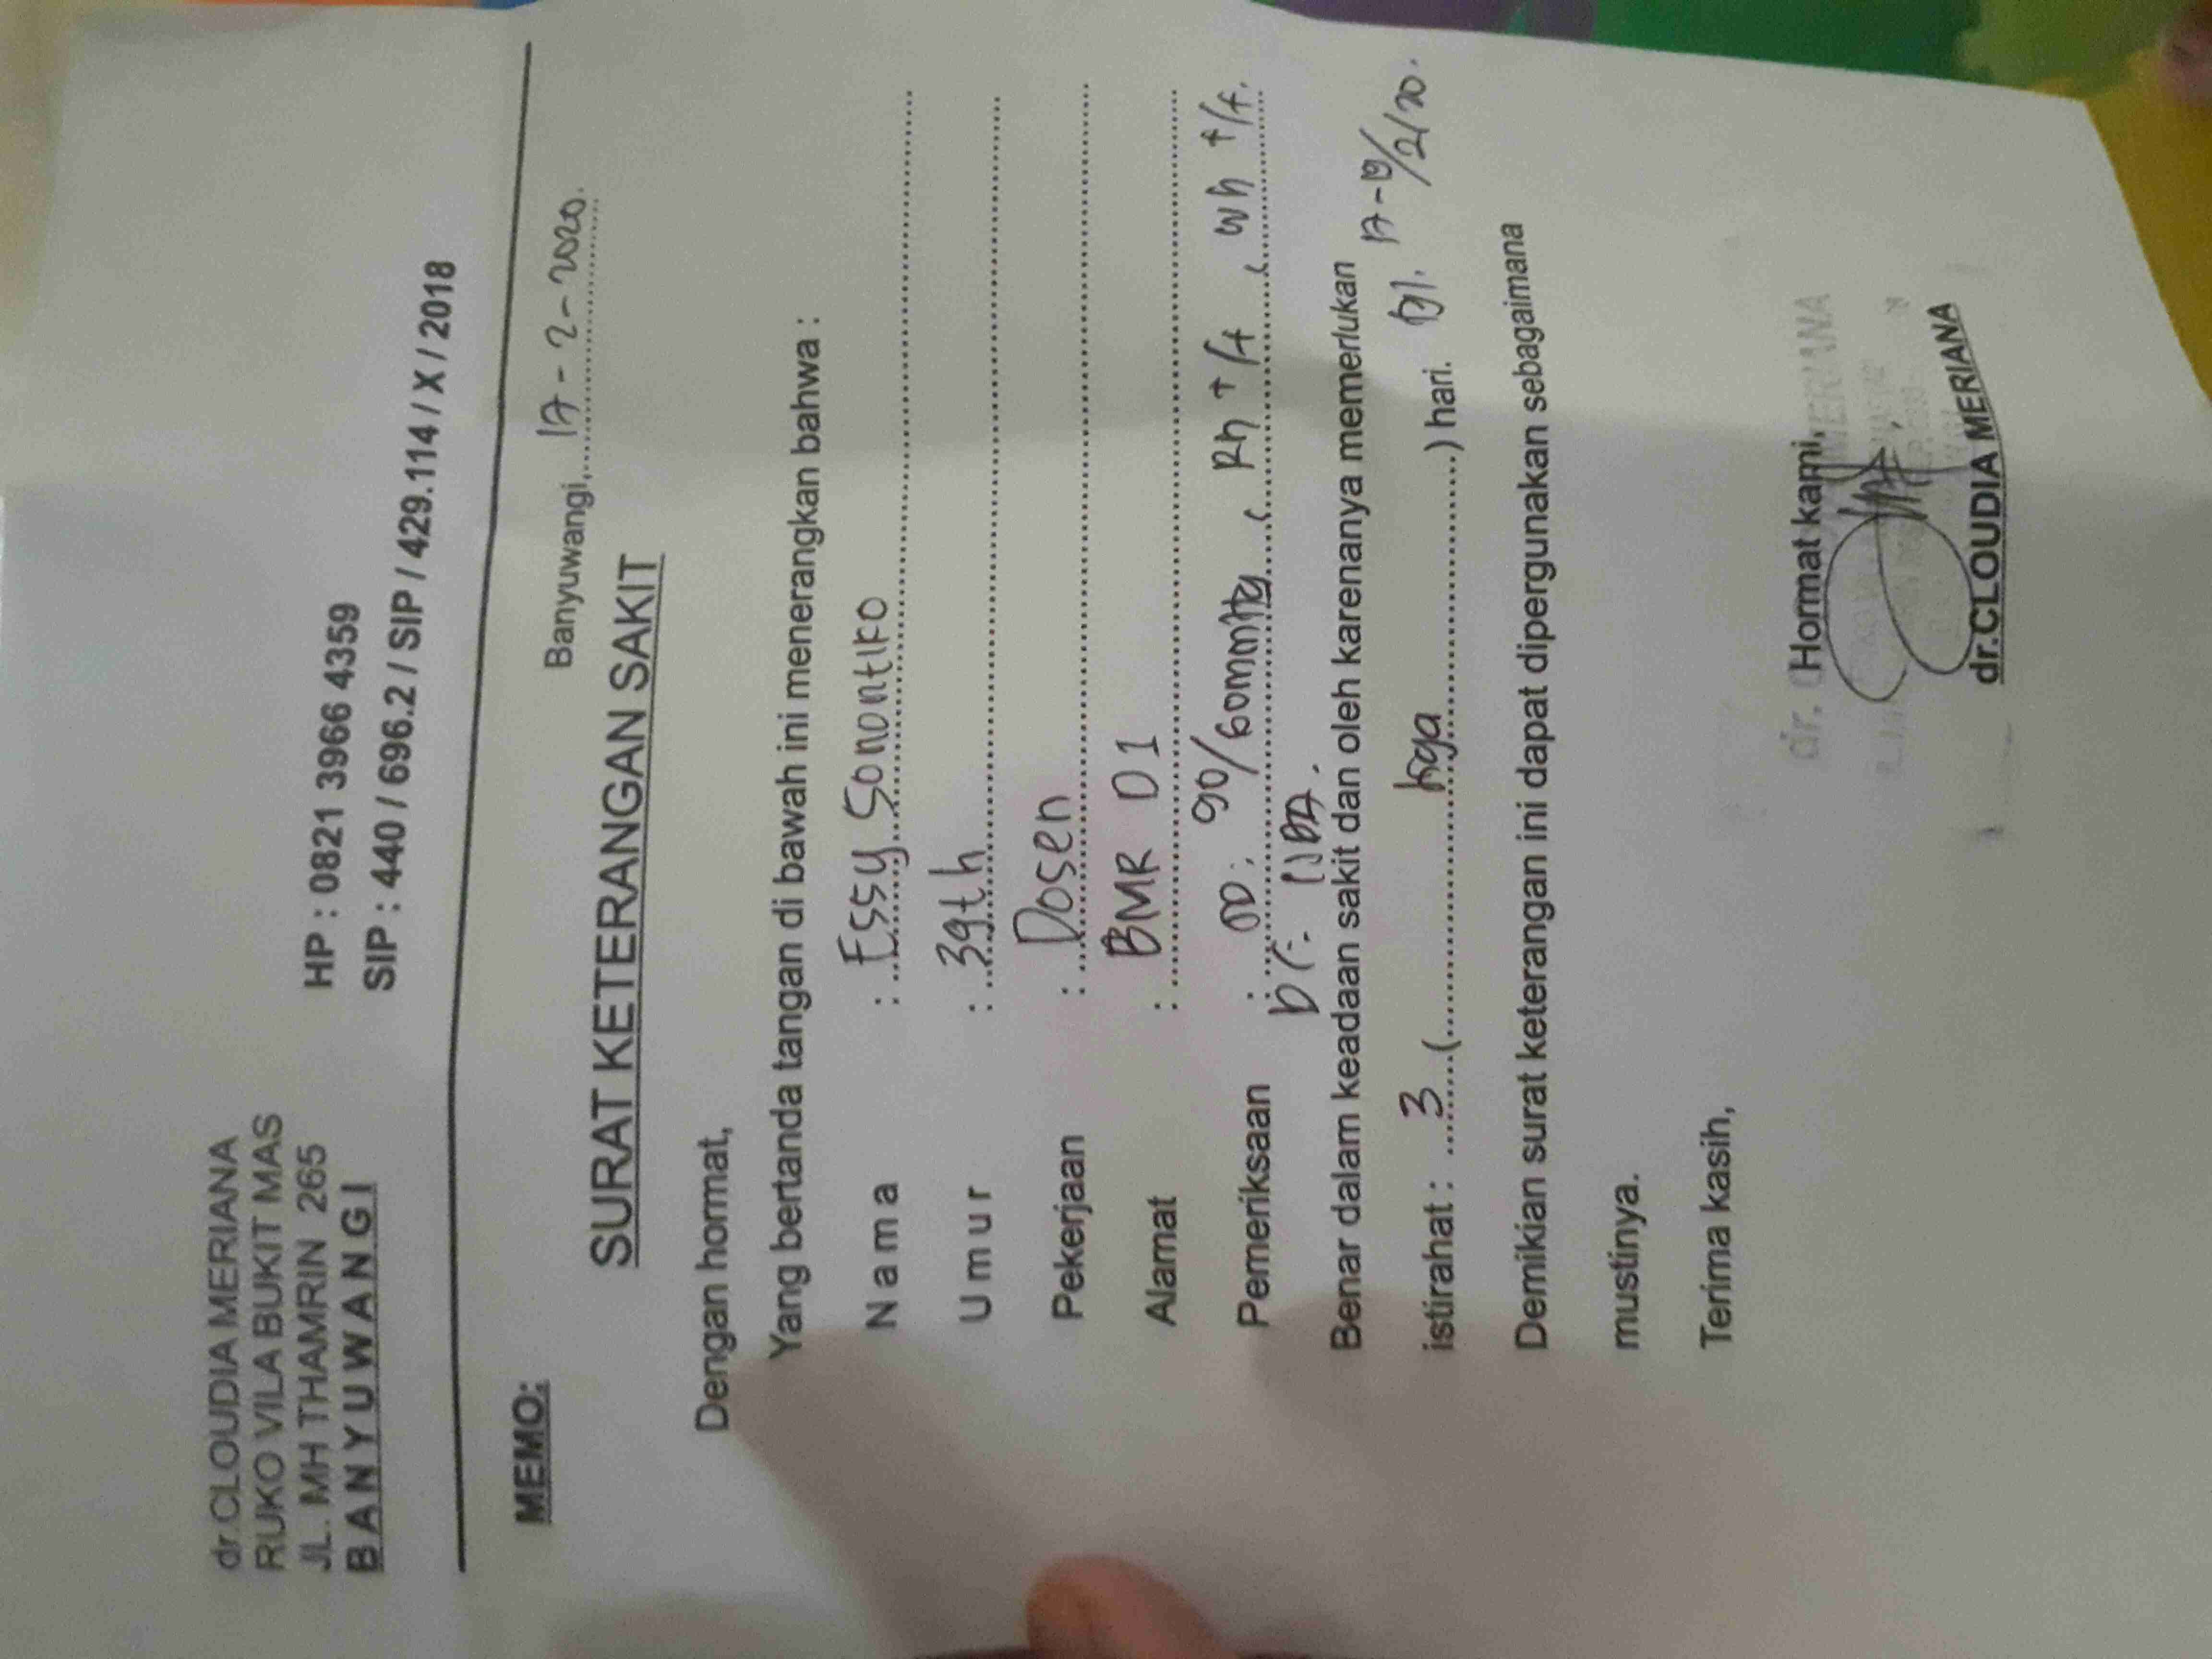 dr.CLOUDIA MERIANA
RUKO VILA BUKIT MAS
JL. MH THAMRIN 265
BANYUWANGI
HP : 0821 3966 4359
SIP : 440 / 696.2 / SIP / 429.114 / X / 2018
MEMO:
Banyuwangi, 17-2-2020.
SURAT KETERANGAN SAKIT
Dengan hormat,
Yang bertanda tangan di bawah ini menerangkan bahwa :
Nama : Essy Sonontiko
Umur : 39th
Pekerjaan : Dosen
Alamat : BMR D1
Pemeriksaan : TD: 90/60mmHg, Rh +/+, Wh +/+.
Benar dalam keadaan sakit dan oleh karenanya memerlukan
istirahat : 3 ( tiga ) hari. 17-19/2/20.
Demikian surat keterangan ini dapat dipergunakan sebagaimana
mustinya.
Terima kasih,
Hormat kami,
dr. MERIANA
dr.CLOUDIA MERIANA